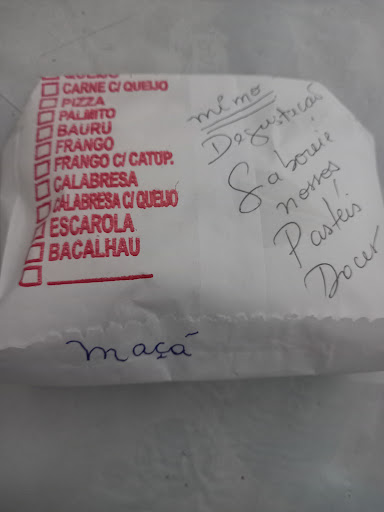 QUEIJO
CARNE C/ QUEIJO
PIZZA
PALMITO
BAURU
FRANGO
FRANGO C/ CATUP.
CALABRESA
CALABRESA C/ QUEIJO
ESCAROLA
BACALHAU
mimo
Degustação
Saboreie
nossos
Pastéis
Doces
maçã